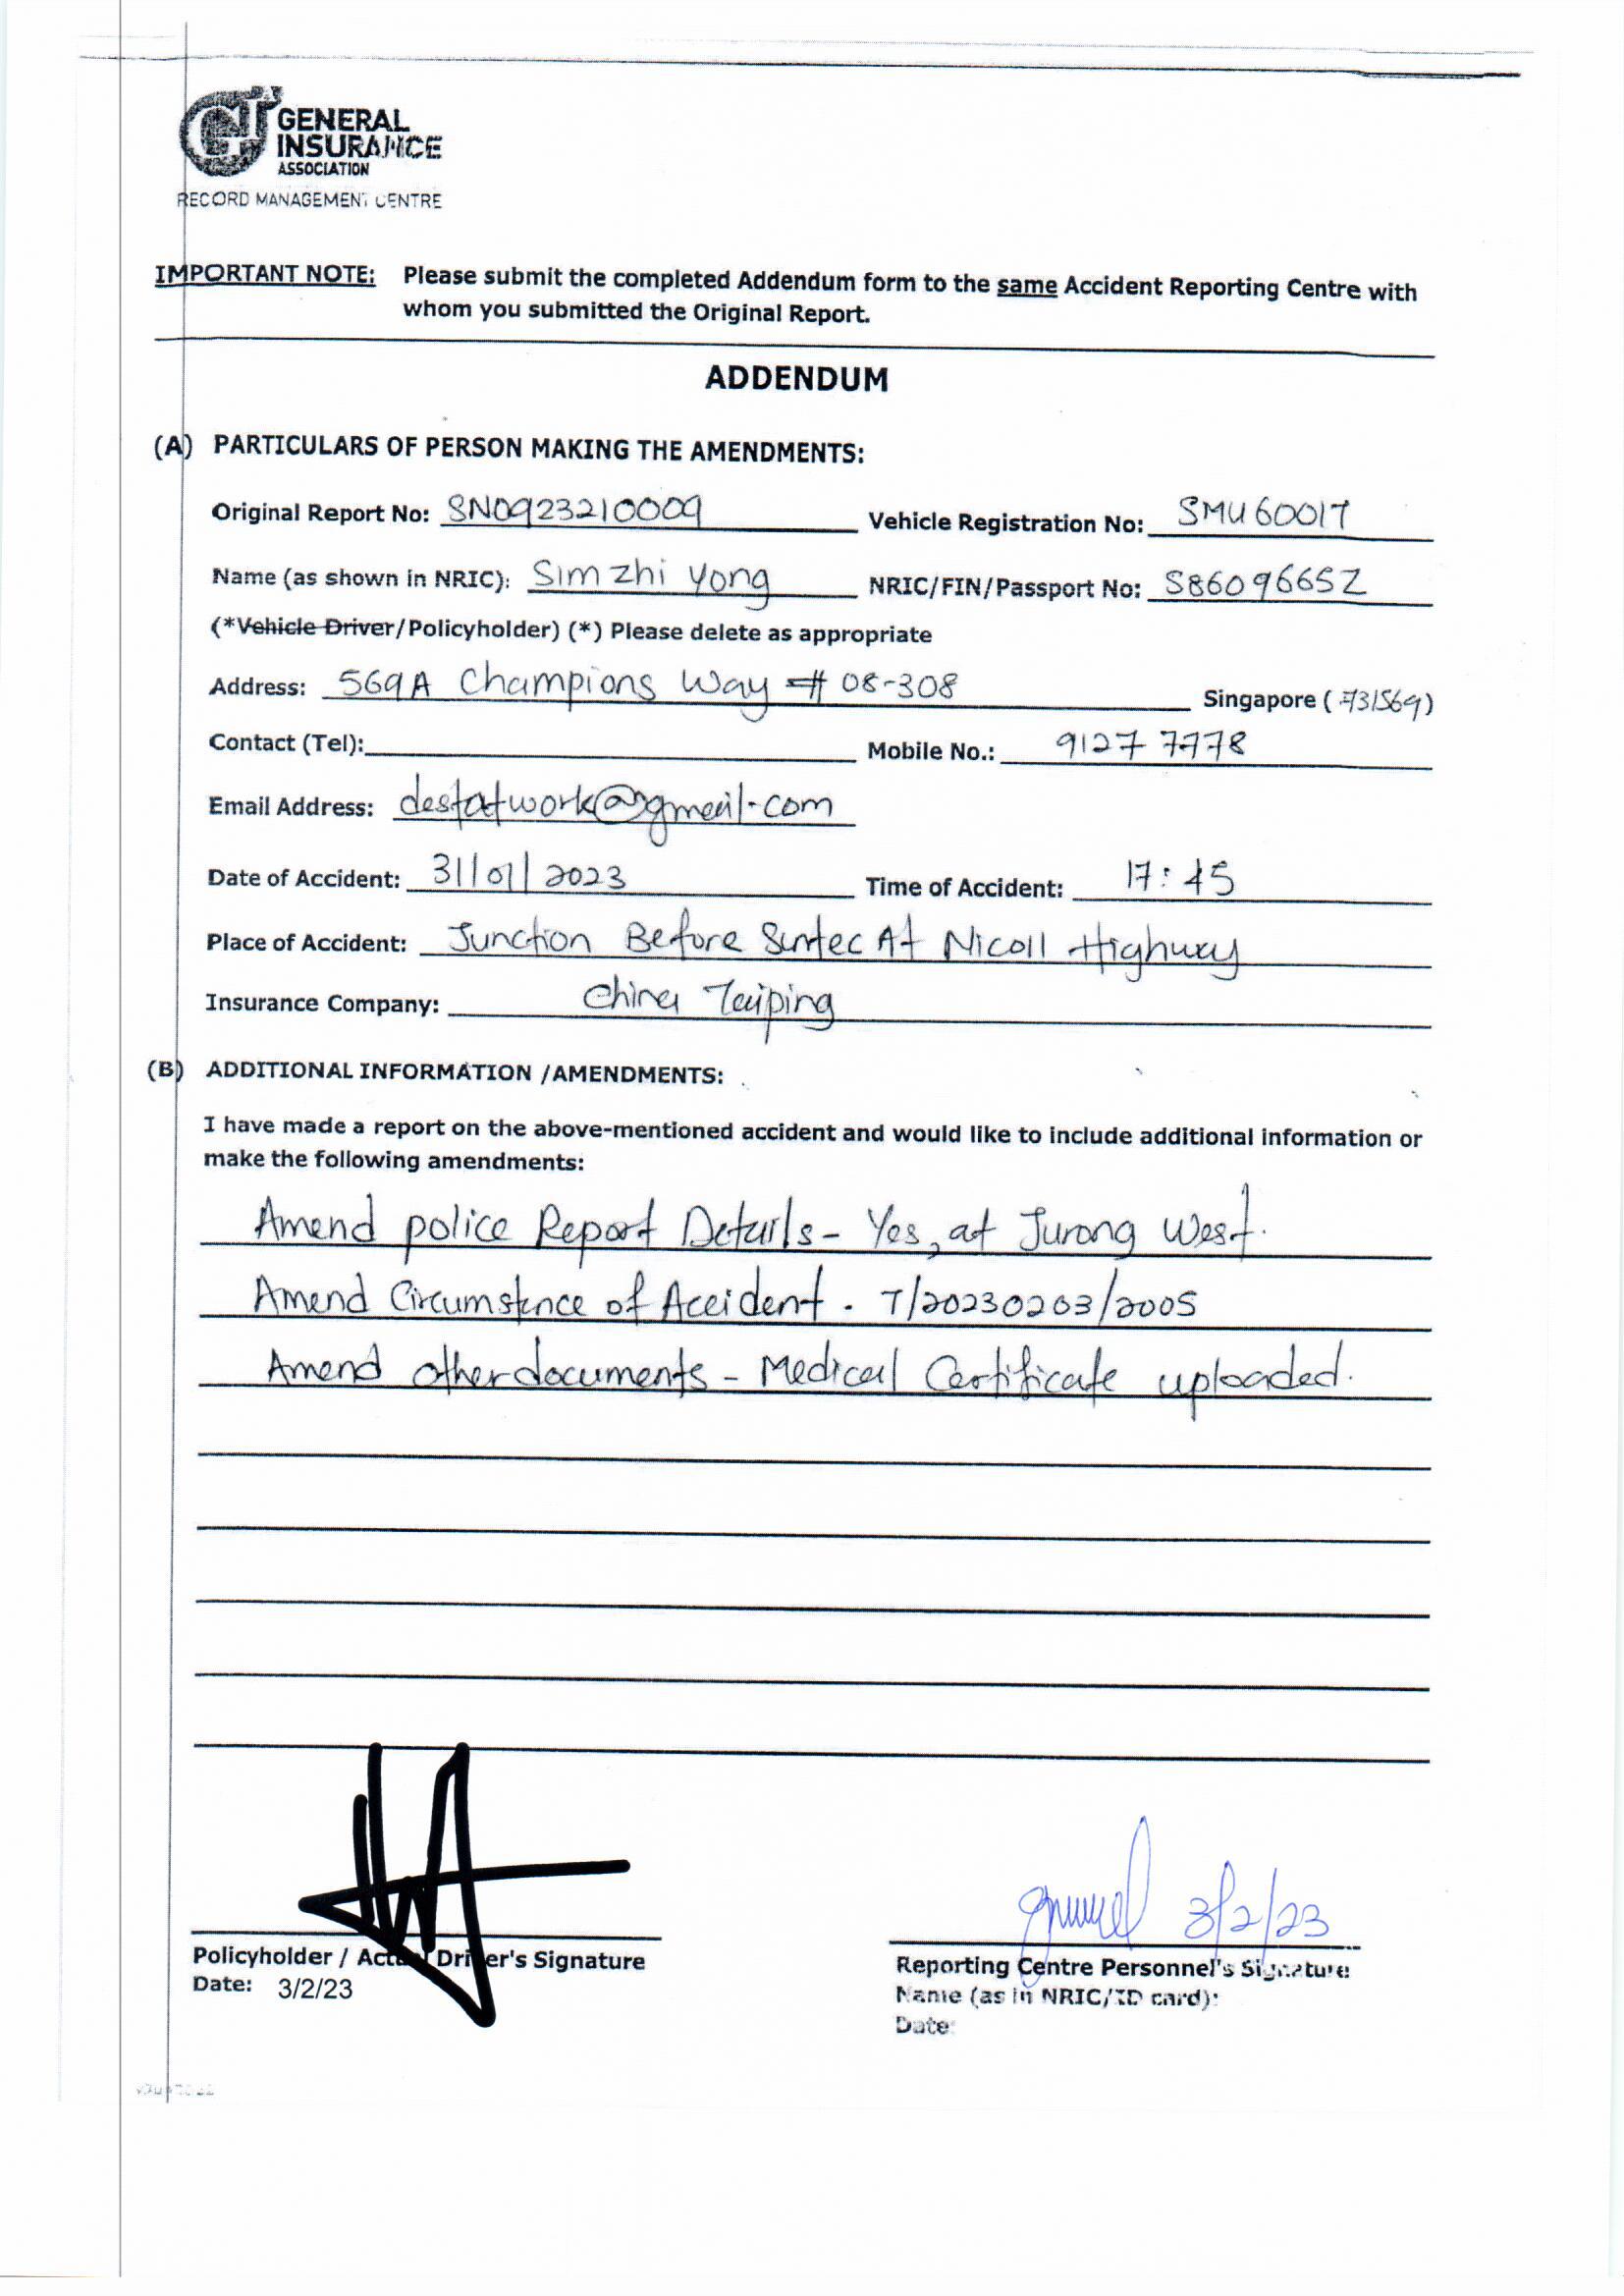 GENERAL
INSURANCE
ASSOCIATION
RECORD MANAGEMENT CENTRE
IMPORTANT NOTE: Please submit the completed Addendum form to the same Accident Reporting Centre with
whom you submitted the Original Report.
ADDENDUM
(A) PARTICULARS OF PERSON MAKING THE AMENDMENTS:
Original Report No: SN0923210009 Vehicle Registration No: SMU6001T
Name (as shown in NRIC): Sim Zhi Yong NRIC/FIN/Passport No: S8609665Z
(*Vehicle Driver/Policyholder) (*) Please delete as appropriate
Address: 569A Champions Way #08-308 Singapore (731569)
Contact (Tel): Mobile No.: 9127 7778
Email Address: destatwork@gmail.com
Date of Accident: 31/01/2023 Time of Accident: 17:45
Place of Accident: Junction Before Suntec At Nicoll Highway
Insurance Company: China Taiping
(B) ADDITIONAL INFORMATION /AMENDMENTS:
I have made a report on the above-mentioned accident and would like to include additional information or
make the following amendments:
Amend police Report Details - Yes, at Jurong West.
Amend Circumstance of Accident. T/20230203/2005
Amend other documents - Medical Certificate uploaded.
3/2/23
Policyholder / Actual Driver's Signature Reporting Centre Personnel's Signature
Date: 3/2/23 Name (as in NRIC/ID card):
Date: